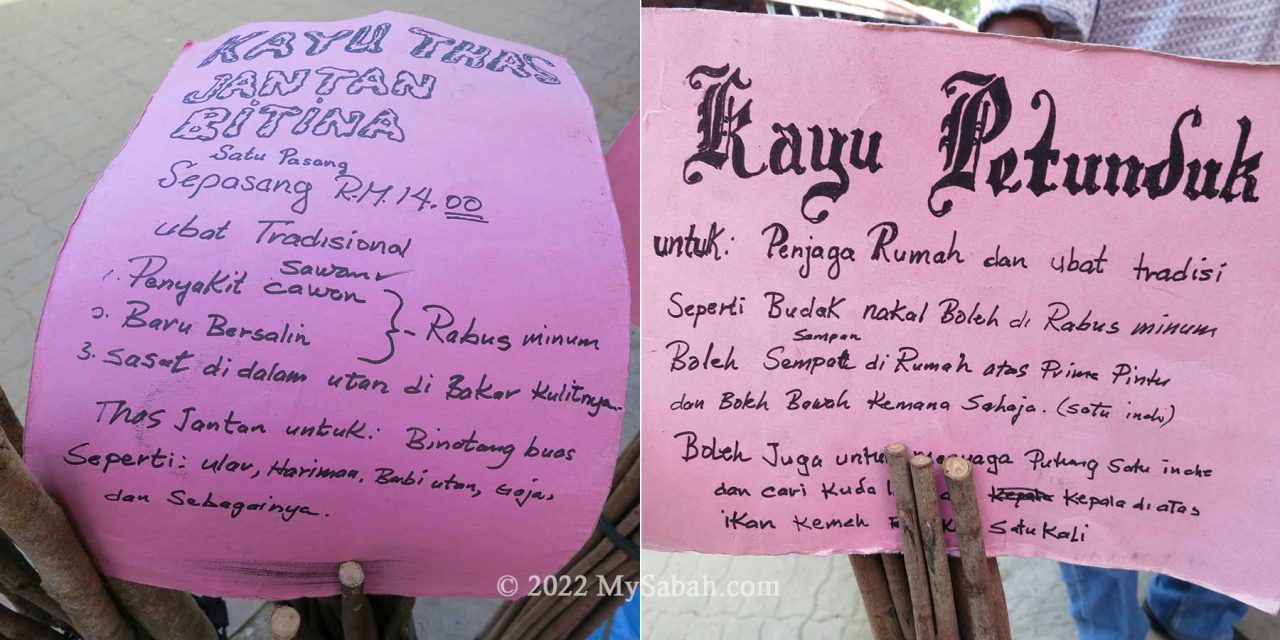 KAYU THAS
JANTAN
BITINA
Satu Pasang
Sepasang R.M.14.00
ubat Tradisional
Sawan
1. Penyakit cawan
2. Baru Bersalin
- Rabus minum
3. Sasat di dalam utan di Bakar Kulitnya.
Thas Jantan untuk: Binatang buas
Seperti: ular, Harimau, Babi utan, Gaja,
dan Sebagainya.
Kayu Petunduk
untuk: Penjaga Rumah dan ubat tradisi
Seperti Budak nakal Boleh di Rabus minum
Sampan
Boleh Sempat di Rumah atas Prime Pintu
dan Boleh Bawah Kemana Sahaja. (satu inchi)
Boleh Juga untuk Menjaga Putung Satu inche
dan cari Kuda Kepala Kepala di atas
ikan Kemeh Satu Kali
© 2022 MySabah.com